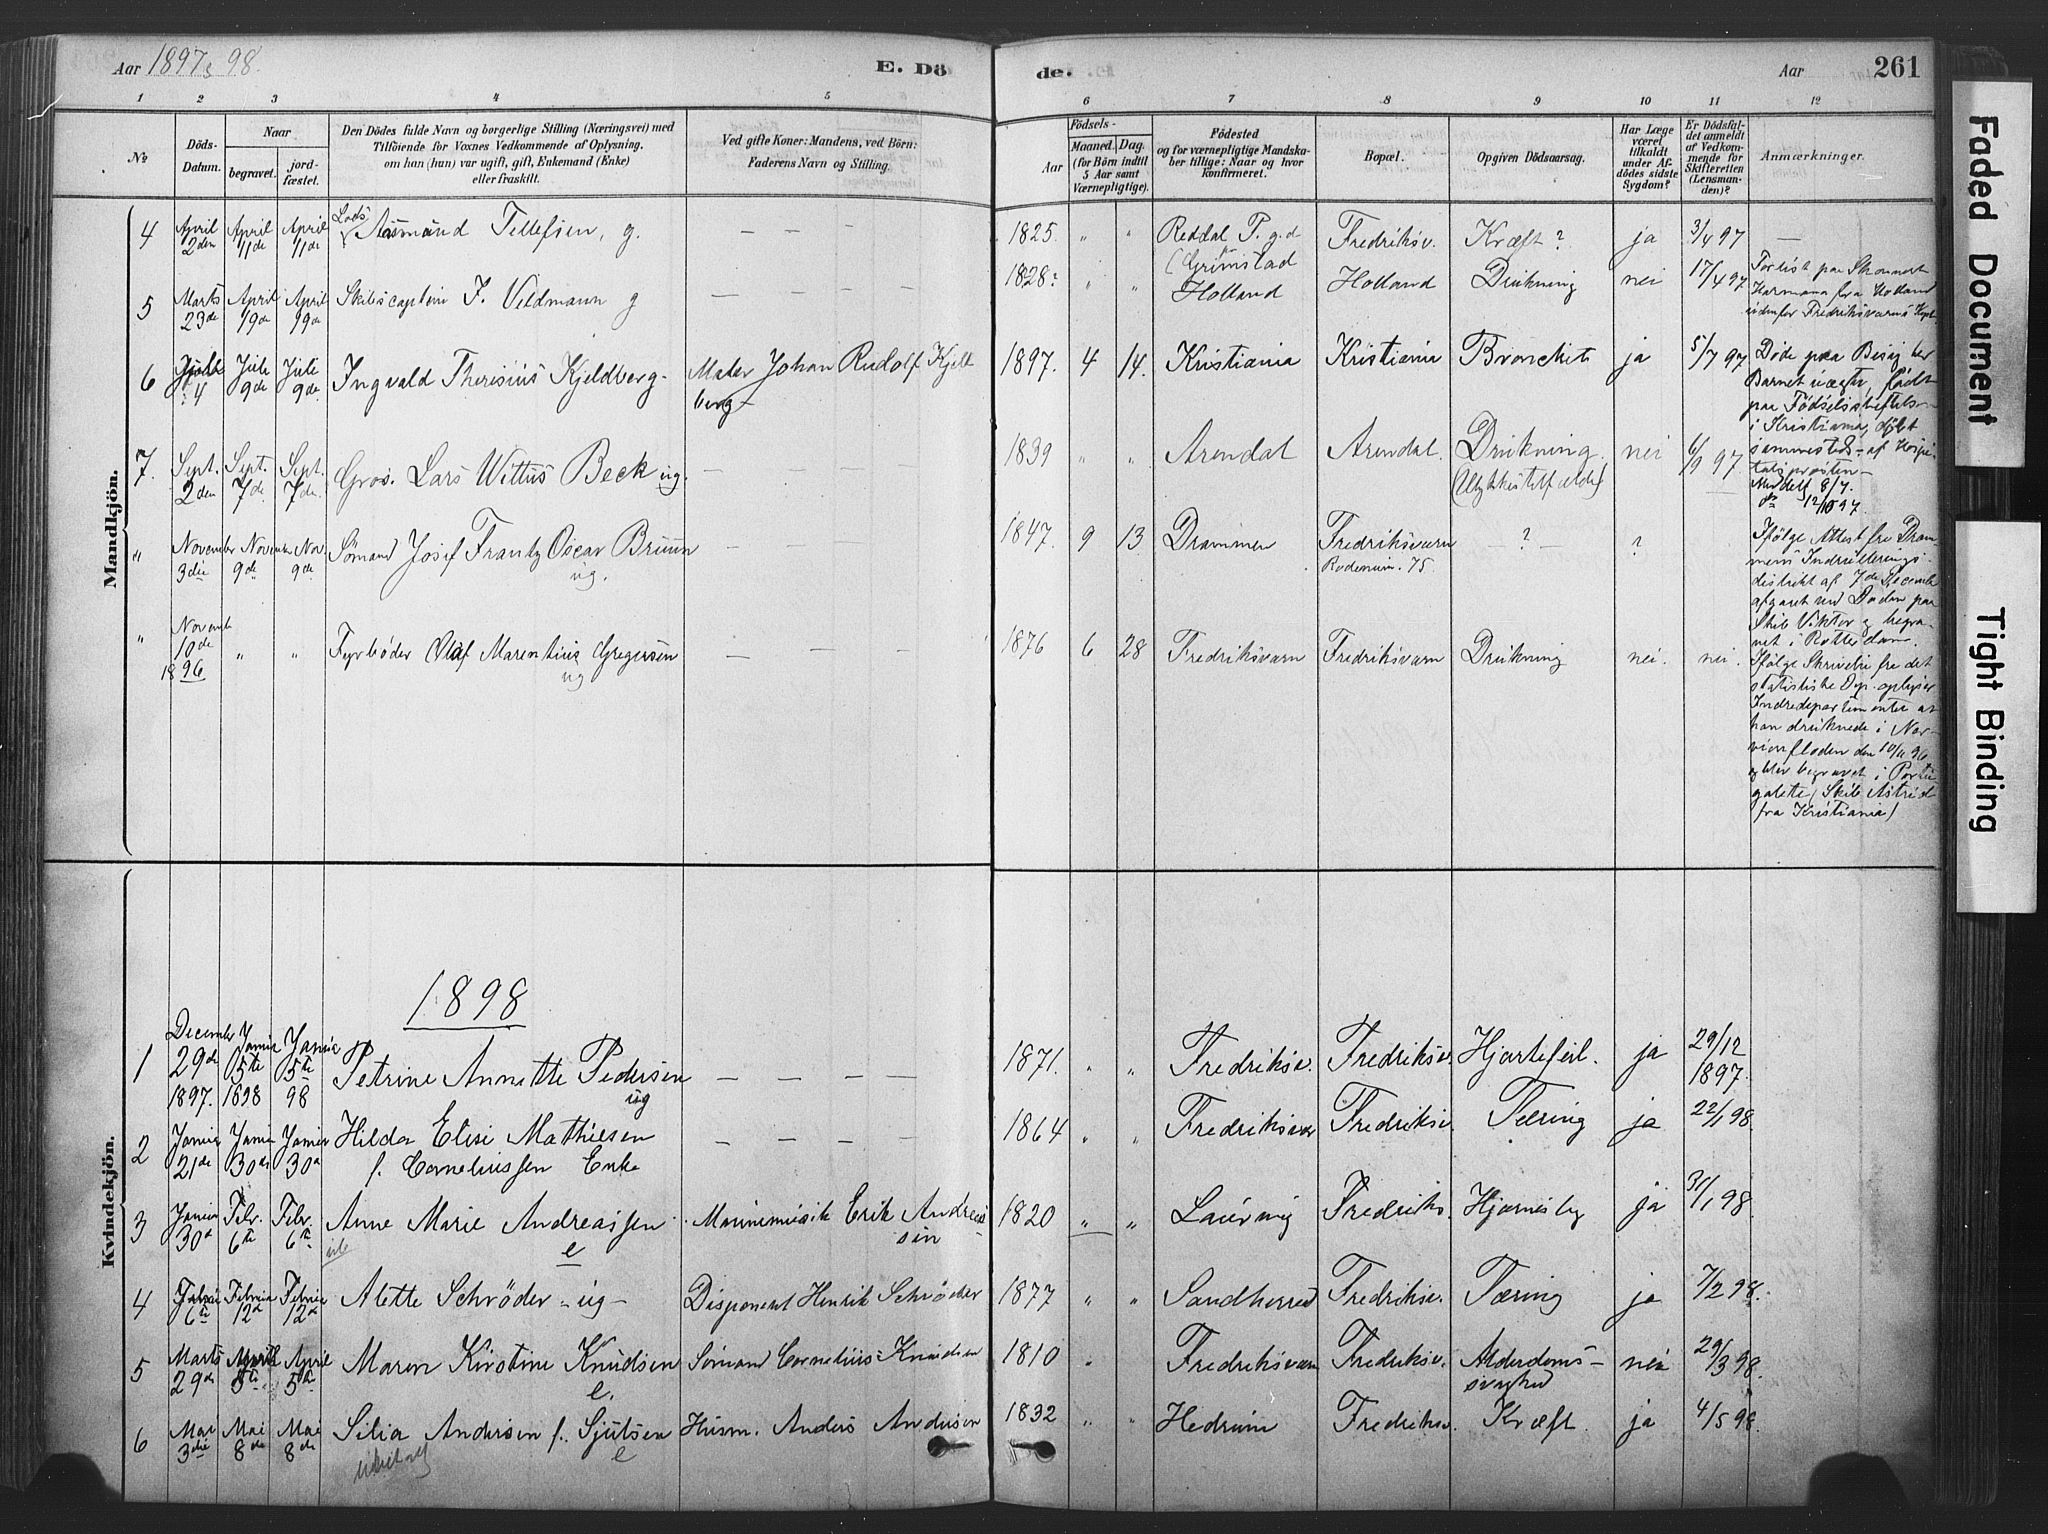 Aar 1897 & 98.
E. Dö
de.
Aar
261
1 2 3 4 5 6 7 8 9 10 11 12
No
Döds-
Datum.
Naar
begravet.
jord-
fæstet.
Den Dödes fulde Navn og borgerlige Stilling (Næringsvei) med
Tilföiende for Voxnes Vedkommende af Oplysning.
om han (hun) var ugift, gift, Enkemand (Enke)
eller fraskilt.
Ved gifte Koner: Mandens, ved Börn:
Faderens Navn og Stilling.
Födsels-
Aar
Maaned. Dag.
(for Börn indtil
5 Aar samt
Værnepligtige).
Födested
og for værnepligtige Mandska-
ber tillige: Naar og hvor
konfirmeret.
Bopæl.
Opgiven Dödsaarsag.
Har Læge
været
tilkaldt
under Af-
dödes sidste
Sygdom?
Er Dödsfal-
det anmeldt
af Vedkom-
mende for
Skifteretten
(Lensman-
den)?
Anmærkninger.
Mandkjön.
4 April 2den April 11de April 11de Lods Aasmund Tellefsen, g. — — — — 1825. " " Reddal P. g. d (Grimstad Fredriksv. Kræft? ja 3/4 97 —
5 Marts 23de April 19de April 19de Skibscaptein F. Veldmann g — — — — 1828? " " Holland Holland Drukning nei 17/4 97
Forlist paa Skonnert
Harmana fra Holland
udenfor Fredriksværns
6 Juli 4 Juli 9de Juli 9de Ingvald Theresius Kjeldberg - Maler Johan Rudolf Kjelt
berg — 1897. 4 14. Kristiania Kristiania Bronchit ja 5/7 97
Døde paa Besøg her
Barnet uægte, født
paa Fødselsstiftelsen
i Kristiania, døbt
sammesteds af Hospi-
talspresten —
Meddelt 8/7.
do 12/10 97.
7. Sept. 2den Sept. 7de Sept. 7de. Gros. Lars Wittus Beck ug. — 1839 " " Arendal Arendal. Drukning. (Ulykkestilfælde) nei 6/9 97
" November 3die November 9de Nov. 9de Sømand Josef Frantz Oscar Bruun
ug. — — — — 1847. 9 13 Drammen Fredriksværn
Rodenum. 75 — ? — ?
Ifølge Attest fra Dram-
mens Indrullerings-
distrikt af 7de December
afgaaet ved Døden paa
Skib Viktor og begra-
vet i Rotterdam.
" Novemb. 10de 1896 " " Fyrbøder Olaf Marentius Gregersen
ug — — — — 1876 6 28 Fredriksværn Fredriksværn Drukning nei. nei.
Ifølge Skrivelse fra det
statistiske Dep. oplyser
Indredepartementet at
han druknede i Ner-
vionfloden den 10/11 96
og blev begravet i Portu-
galette (Skib Astrid
fra Kristiania)
Kvindekjön.
1898
1 December 29de 1897. Januar 5te 1898 Januar 5te 98 Petrine Annette Pedersen
ug — — — — 1871. " " Fredriksv. Fredriksv. Hjertefeil. ja 29/12 1897.
2 Januar 21de Januar 30de Januar 30d Hilda Elisi Mathiesen
f. Corneliussen Enke — — — — 1864 " " Fredriksvær Fredriksv. Tæring ja 22/1 98.
3 Januar 30d Febr. 6te Febr. 6te Anne Marie Andreassen
e Marinemusik Erik Andreas
sen 1820 " " Laurvig Fredriks. ja 31/1 98.
4 Februar 6te Februar 12d Februar 12d Alette Schrøder - ug - Disponent Henrik Schrøder 1877 " " Sandherred Fredriksv. Tæring ja 7/2 98.
5 Marts 29de April 5te April 5te Maren Kirstine Knudsen
e. Sømand Cornelius Knudsen 1810 " Fredriksværn Fredriksv. Alderdoms-
svaghed nei 29/3 98.
6 Mai 3die Mai 8de Mai 8de Silia Andersen f. Sjulsen
e Husm. Anders Andersen 1832 " " Hedrum Fredriksv. Kræft. ja 4/5 98.
Faded Document
Tight Binding